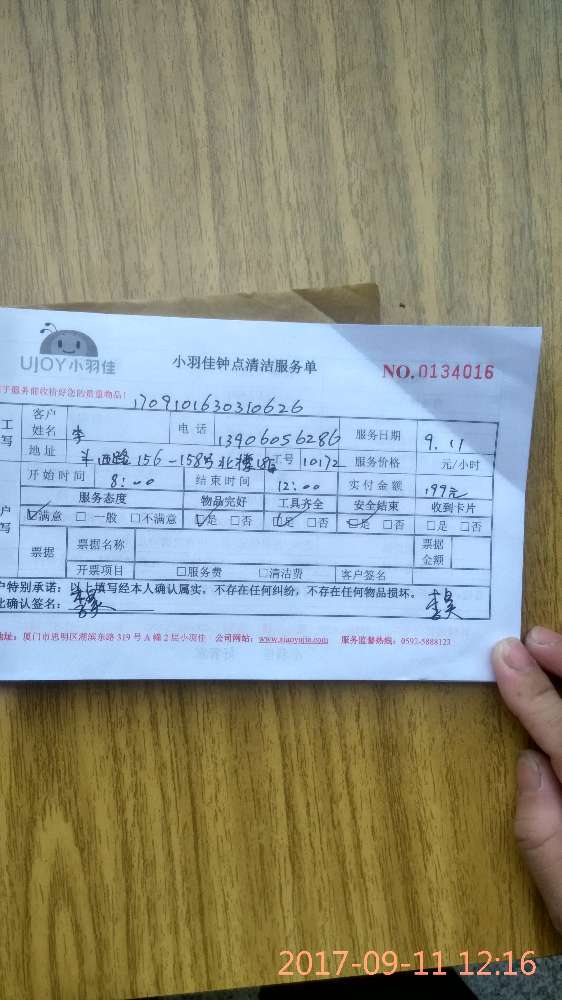 UJOY小羽佳
小羽佳钟点清洁服务单
NO.0134016
于服务前收检好您的贵重物品!
1709101630310626
工 客户姓名 李 电话 13906056286 服务日期 9.11
写 地址 156-158号北楼 工号 10172 服务价格 元/小时
开始时间 8:00 结束时间 12:00 实付金额 199元
服务态度 物品完好 工具齐全 安全结束 收到卡片
户 ☑满意 □一般 □不满意 ☑是 □否 ☑是 □否 ☑是 □否 □是 □否
写 票据 票据名称 票据金额
开票项目 □服务费 □清洁费 客户签名
户特别承诺:以上填写经本人确认属实,不存在任何纠纷,不存在任何物品损坏。
此确认签名:
地址:厦门市思明区湖滨东路319号A幢2层小羽佳 公司网站:www.xiaoyujia.com 服务监督热线:0592-5888123
2017-09-11 12:16